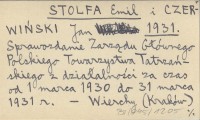 STOLFA Emil i CZER-
WIŃSKI Jan 1931.
Sprawozdanie Zarządu Głównego
Polskiego Towarzystwa Tatrzań-
skiego z działalności za czas
od 1 marca 1930 do 31 marca
1931 r. — Wierchy (Kraków)